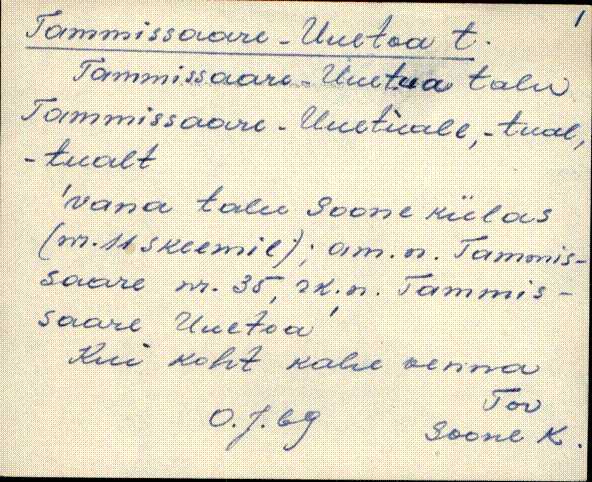 1
Tammissaare-Uuetoa t.
Tammissaare-Uuetua talu
Tammissaare-Uuetuale, -tual,
-tualt
'vana talu Soone külas
(nr. 11 skeemil); am. n. Tammis-
saare nr. 35, rk. n. Tammis-
saare Uuetoa'
Kui koht kahe venna
Tov
O. J. 69
Soone k.